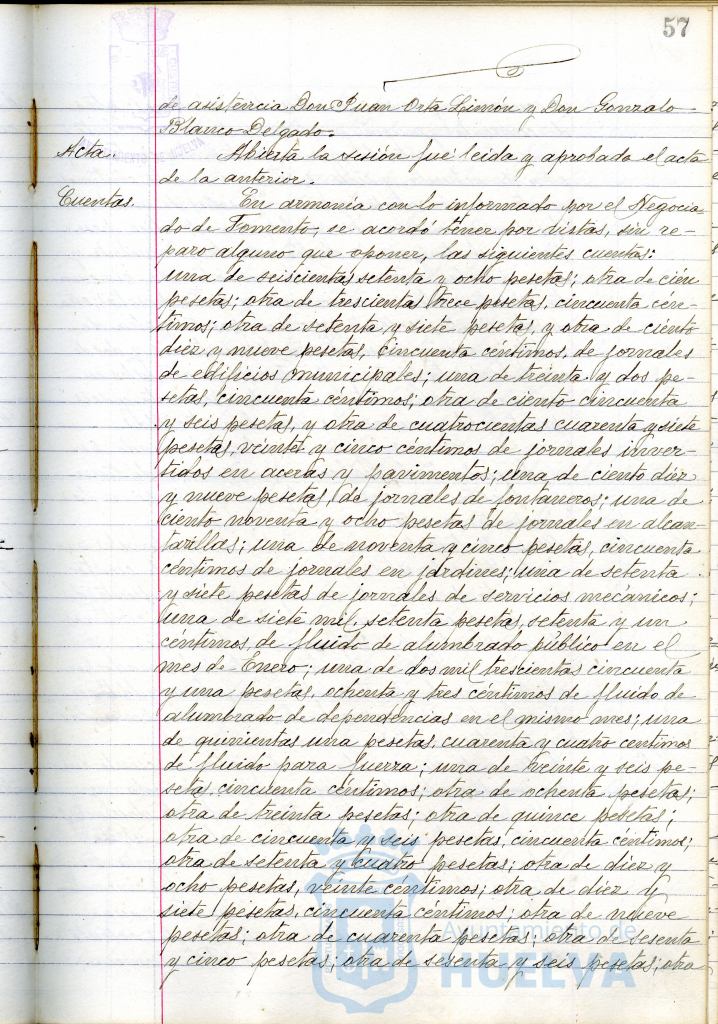 57
de asistencia Don Juan Orta Limón y Don Gonzalo
Blanco Delgado.
Acta. Abierta la sesión fué leida y aprobada el acta
de la anterior.
Cuentas. En armonía con lo informado por el Negocia-
do de Fomento, se acordó tener por vistas, sin re-
paro alguno que oponer, las siguientes cuentas:
una de seiscientas setenta y ocho pesetas; otra de cien
pesetas; otra de trescientas trece pesetas, cincuenta cén-
timos; otra de setenta y siete pesetas, y otra de ciento
diez y nueve pesetas, cincuenta céntimos, de jornales
de edificios municipales; una de treinta y dos pe-
setas, cincuenta céntimos; otra de ciento cincuenta
y seis pesetas, y otra de cuatrocientas cuarenta y siete
pesetas, veinte y cinco céntimos de jornales inver-
tidos en aceras y pavimentos; una de ciento diez
y nueve pesetas, de jornales de fontaneros; una de
ciento noventa y ocho pesetas de jornales en alcan-
tarillas; una de noventa y cinco pesetas, cincuenta
céntimos de jornales en jardines; una de setenta
y siete pesetas de jornales de servicios mecánicos;
una de siete mil setenta pesetas, setenta y un
céntimos, de fluido de alumbrado público en el
mes de Enero; una de dos mil trescientas cincuenta
y una pesetas, ochenta y tres céntimos de fluido de
alumbrado de dependencias en el mismo mes; una
de quinientas una pesetas, cuarenta y cuatro centimos
de fluido para fuerza; una de veinte y seis pe-
setas, cincuenta céntimos; otra de ochenta pesetas;
otra de treinta pesetas; otra de quince pesetas;
otra de cincuenta y seis pesetas, cincuenta céntimos;
otra de setenta y cuatro pesetas; otra de diez y
ocho pesetas, veinte céntimos; otra de diez y
siete pesetas, cincuenta céntimos; otra de nueve
pesetas; otra de cuarenta pesetas; otra de sesenta
y cinco pesetas; otra de sesenta y seis pesetas; otra
Ayuntamiento de
HUELVA